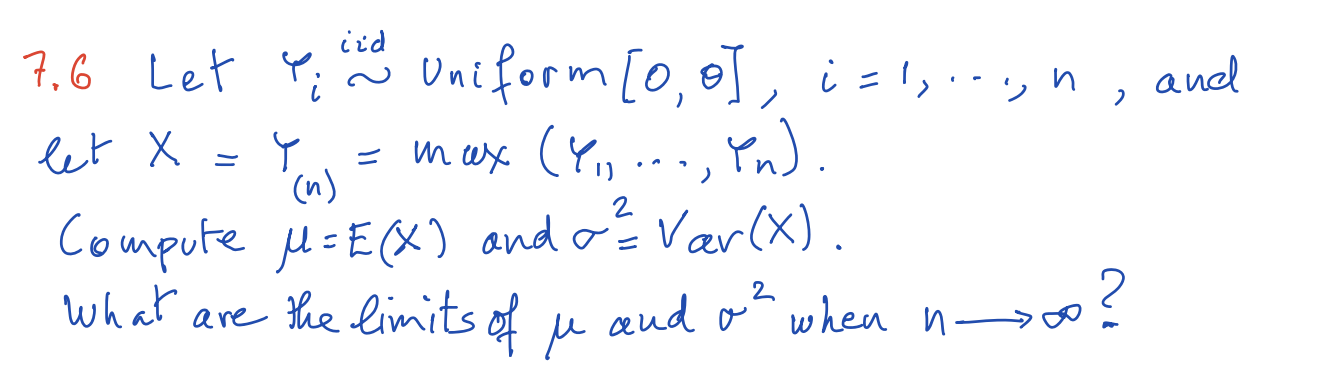 7.6 Let Yᵢ iid ~ Uniform [0, θ], i = 1, ..., n, and
let X = Y₍ₙ₎ = max (Y₁, ..., Yₙ).
Compute μ = E(X) and σ² = Var(X).
What are the limits of μ and σ² when n ⟶ ∞?